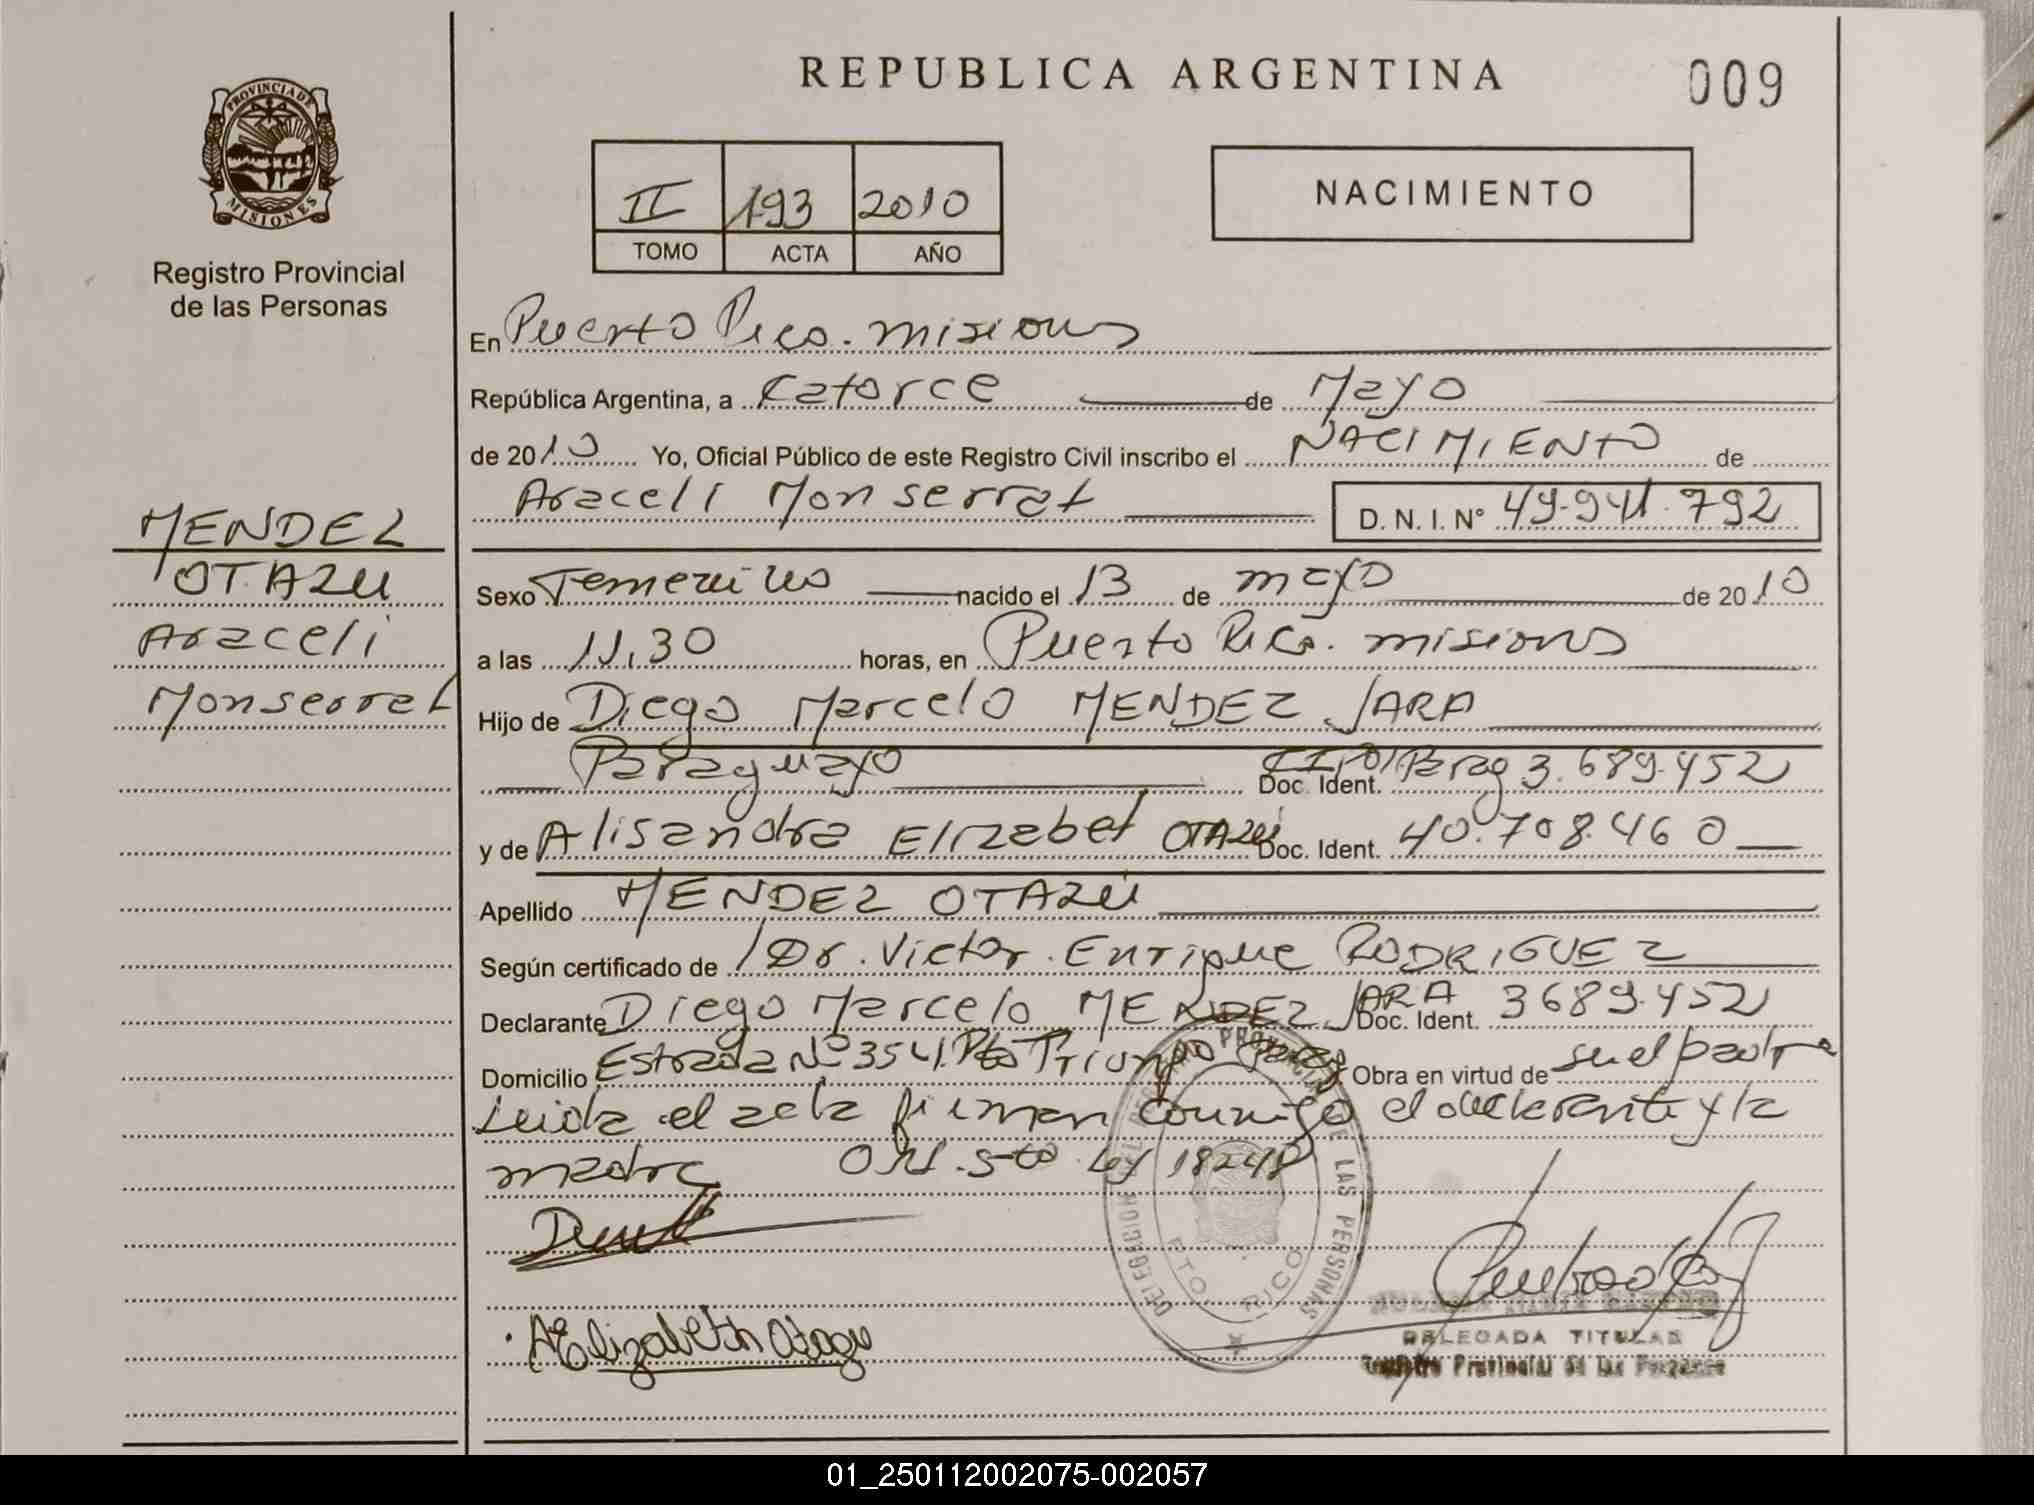 REPUBLICA ARGENTINA
009
PROVINCIA DE
MISIONES
Registro Provincial
de las Personas
II 193 2010
TOMO ACTA AÑO
NACIMIENTO
En Puerto Rico. misiones
República Argentina, a catorce de Mayo
de 2010 Yo, Oficial Público de este Registro Civil inscribo el NACIMIENTO de
Araceli Monserrat D. N. I. N° 49.941.792
MENDEZ
OTAZU
Araceli
Monserrat
Sexo Femenino nacido el 13 de mayo de 2010
a las 11,30 horas, en Puerto Rico. misiones
Hijo de Diego Marcelo MENDEZ JARA
Paraguayo Doc. Ident. Parag 3.689.452
y de Alisandra Elizabet OTAZÚ Doc. Ident. 40.708.460
Apellido MENDEZ OTAZÚ
Según certificado de Dr. Victor Enrique RODRIGUEZ
Declarante Diego Marcelo MENDEZ JARA Doc. Ident. 3689.452
Domicilio Estrada N° 354. Pto Triunfo Parag Obra en virtud de ser el padre
Leida el acta firman conmigo el declarante y la
madre Ley 18248
DELEGACION DEL REGISTRO PROVINCIAL DE LAS PERSONAS
PTO. RICO
A Elizabeth Otazu
DELEGADA TITULAR
Registro Provincial de las Personas
01_250112002075-002057